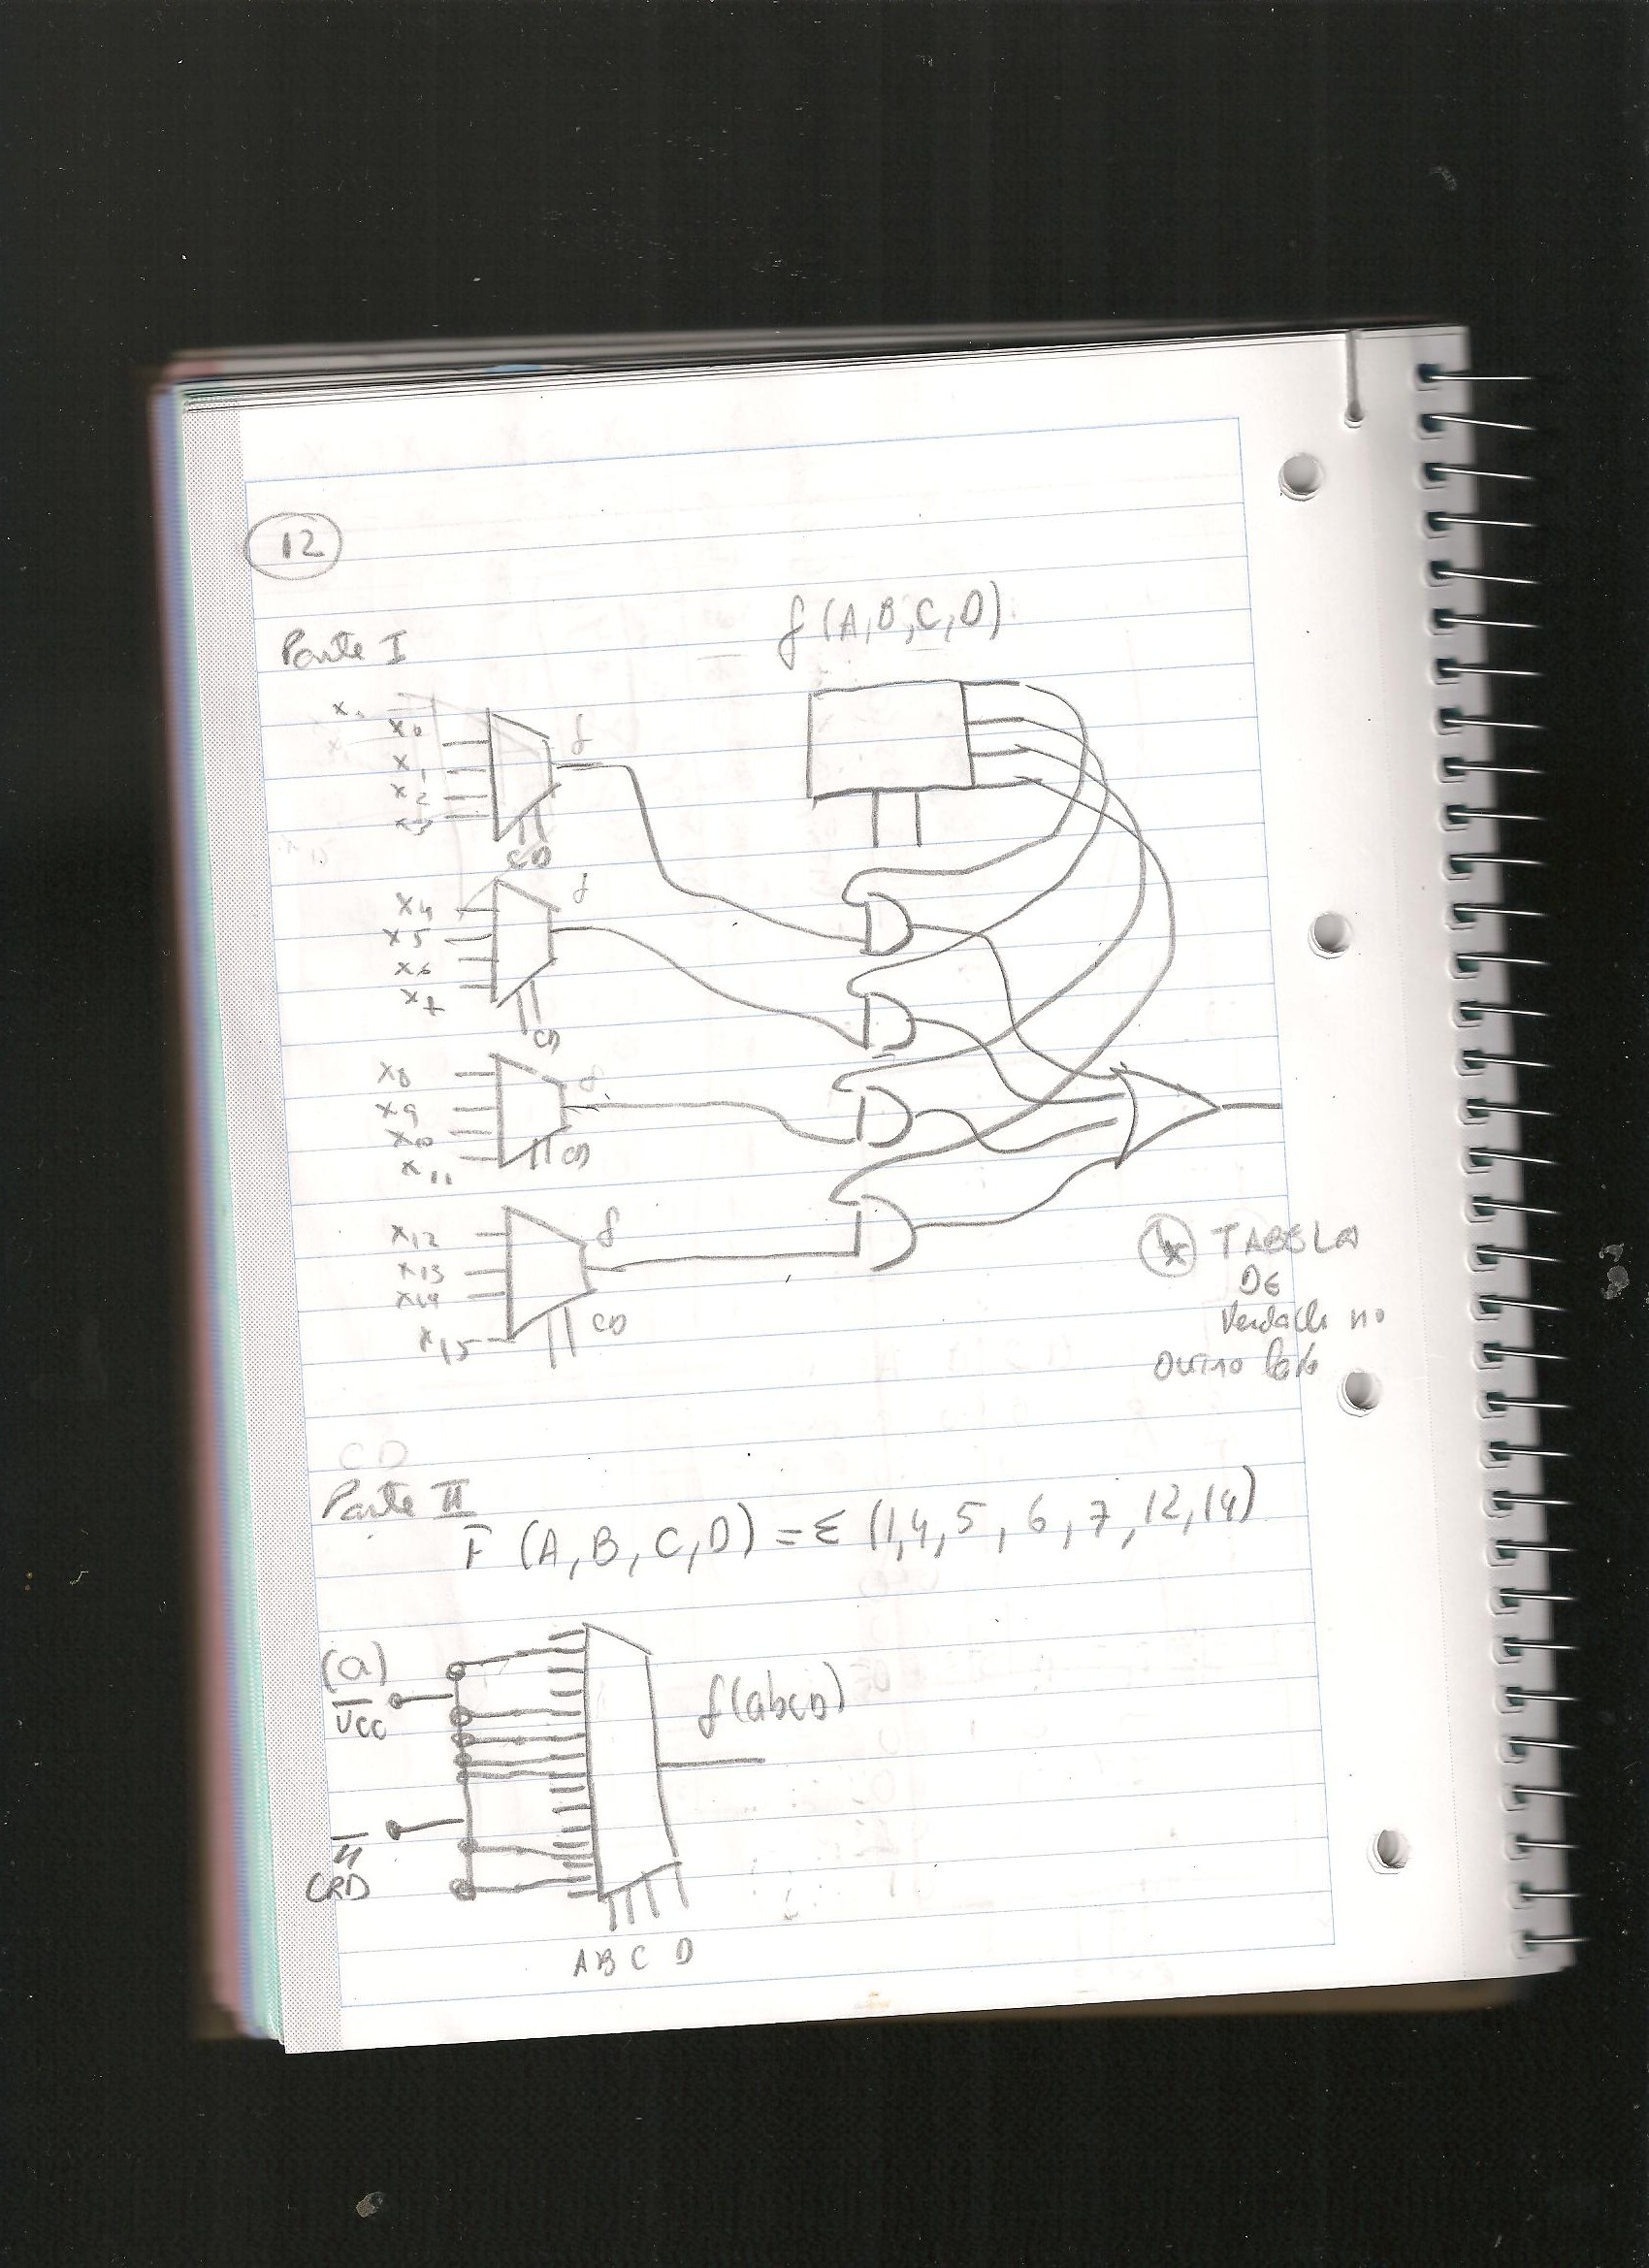 12
f(A,B,C,D)
Parte I
x0
x1
x2
x3
f
CD
x4
x5
x6
x7
f
CD
x8
x9
x10
x11
f
CD
x12
x13
x14
x15
f
CD
TABELA
DE
Verdade no
outro lado
CD
Parte II
F (A,B,C,D) = Σ (1,4,5,6,7,12,14)
(a)
VCC
f(abcD)
GRD
A B C D